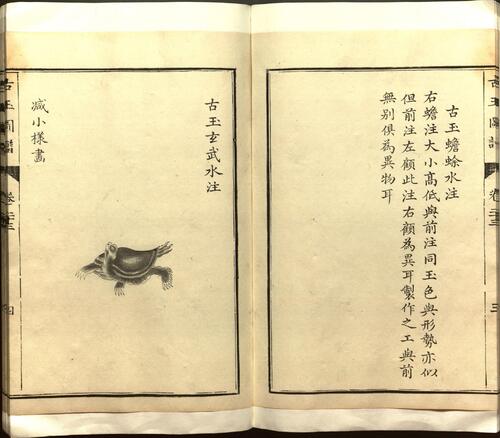 古玉圖譜
卷七十三
三
古玉蟾蜍水注
右蟾注大小髙低與前注同玉色與形勢亦似
但前注左顧此注右顧為異耳製作之工與前
無别俱為異物耳
古玉玄武水注
减小樣畫
古玉圖譜
四